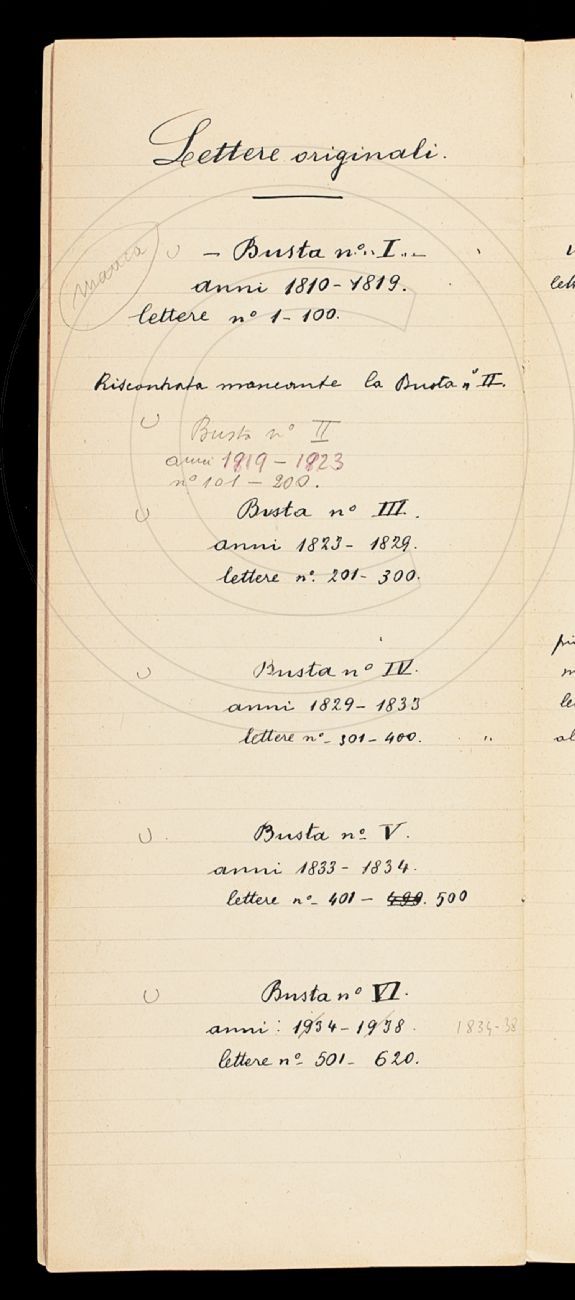 Lettere originali.
manca
- Busta nº I -
anni 1810-1819.
lettere nº 1-100.
Riscontrata mancante la Busta nº II.
Busta nº II
anni 1819-1823
nº 101-200.
Busta nº III.
anni 1823-1829.
lettere nº 201-300.
Busta nº IV.
anni 1829-1833
lettere nº 301-400.
Busta nº V.
anni 1833-1834.
lettere nº 401-499. 500
Busta nº VI.
anni: 1934-1938. 1834-38
lettere nº 501-620.